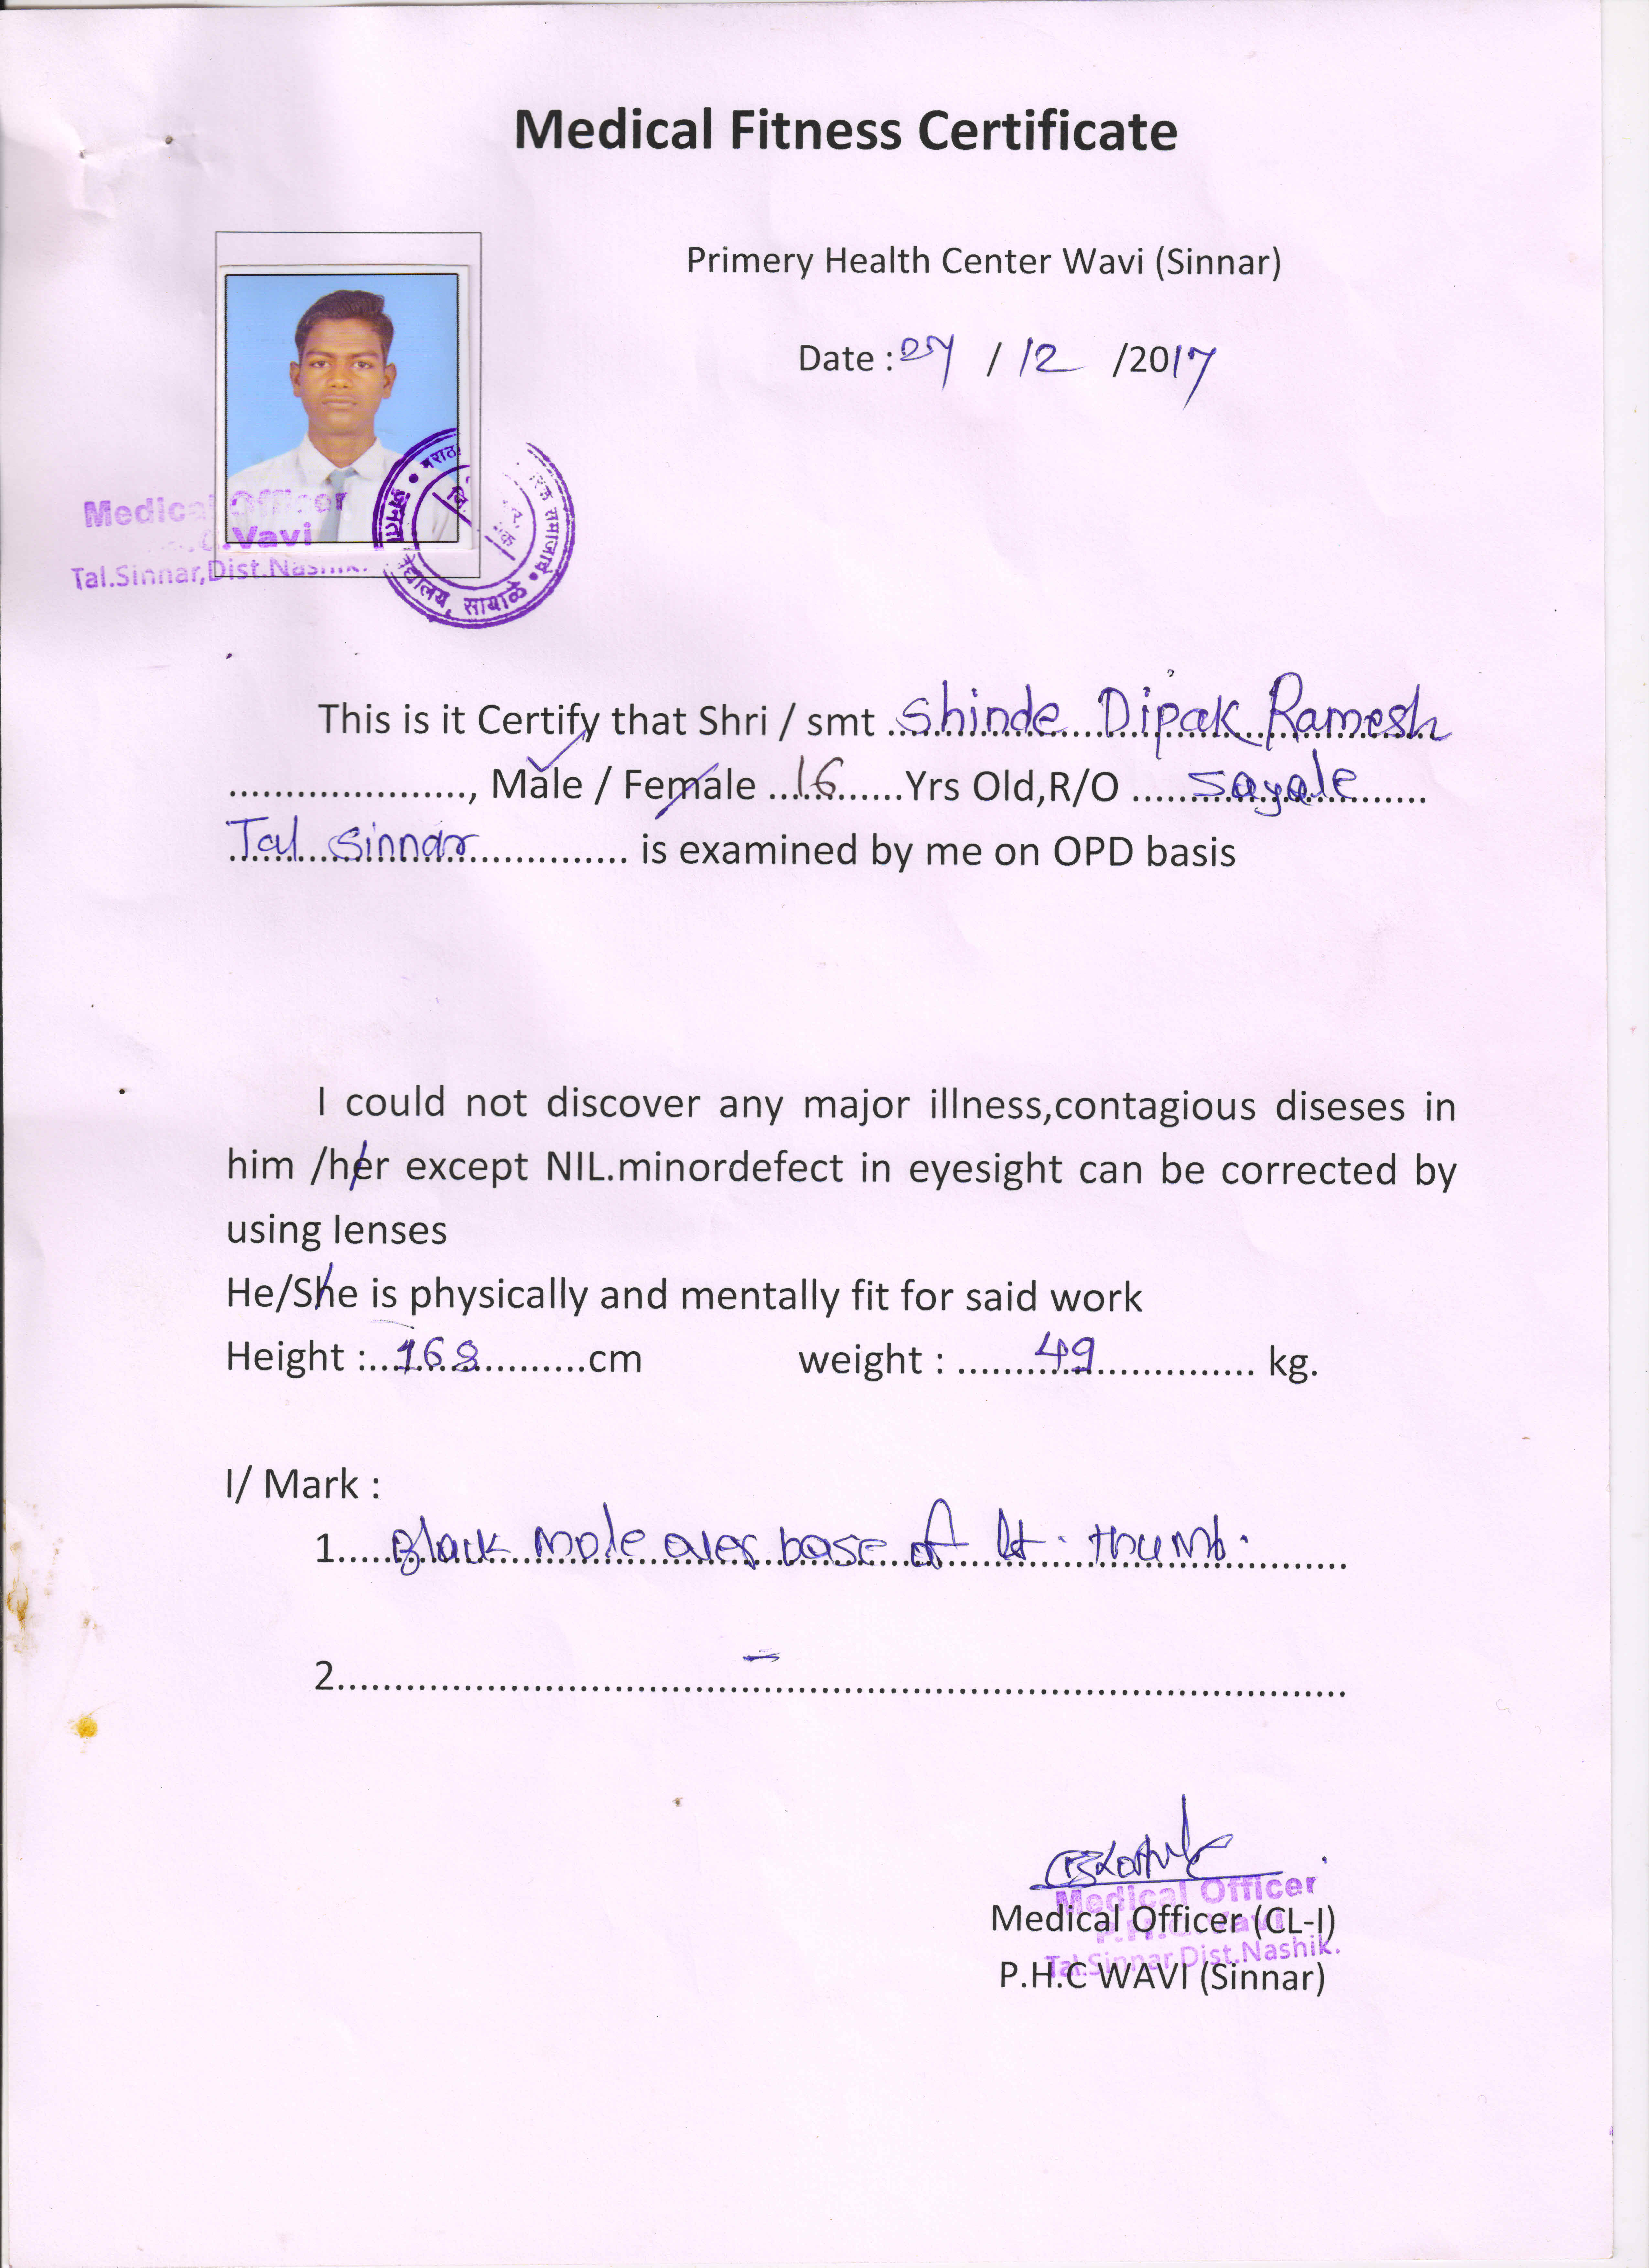 Medical Fitness Certificate
Primery Health Center Wavi (Sinnar)
Date : / 12 /2017
Medical Officer
Vavi
Tal.Sinnar,Dist.Nashik.
जनता
सायाळे
This is it Certify that Shri / smt Shinde Dipak Ramesh
....................., Male / Female 16 Yrs Old,R/O Sayale
Tal Sinnar is examined by me on OPD basis
I could not discover any major illness,contagious diseses in
him /her except NIL.minordefect in eyesight can be corrected by
using lenses
He/She is physically and mentally fit for said work
Height : 168 cm weight : 49 kg.
I/ Mark :
1. Black mole over base of lt. thumb.
2. -
Medical Officer
P.H.C. Vavi
Tal.Sinnar,Dist.Nashik.
Medical Officer (CL-I)
P.H.C WAVI (Sinnar)